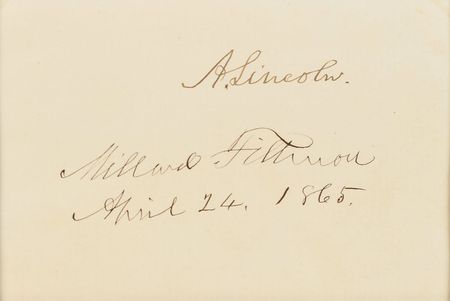 A. Lincoln.
Millard Fillmore
April 24. 1865.